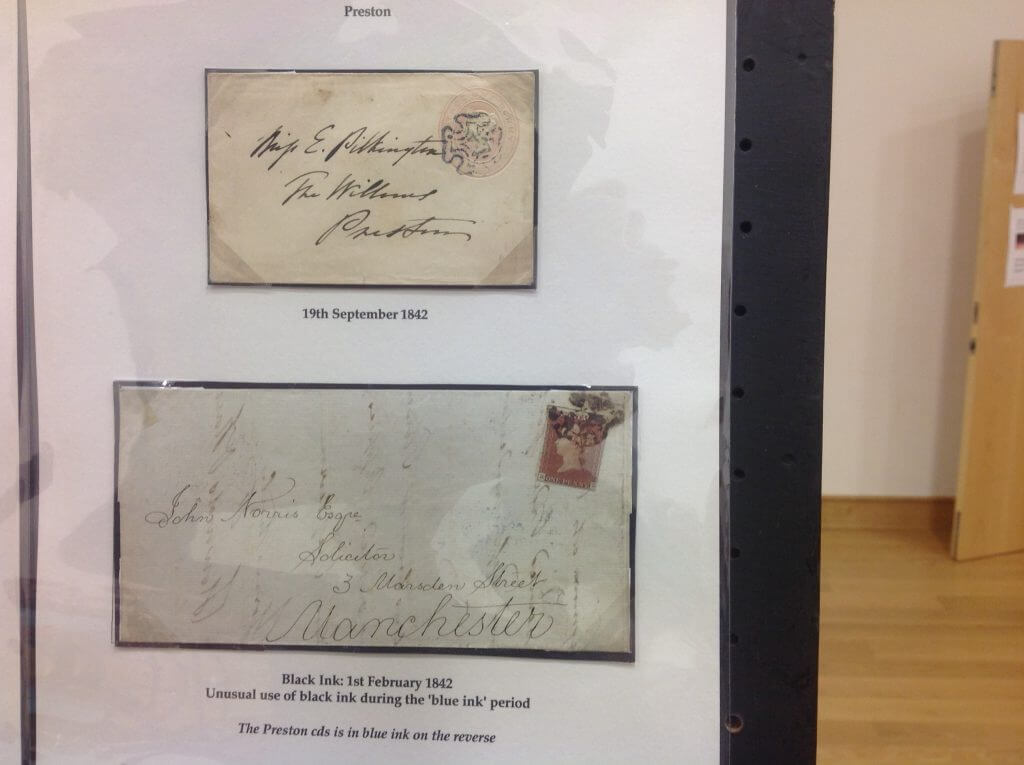 Preston
Miss E. Pilkington
The Willows
Preston
19th September 1842
ONE PENNY
John Norris Esqre
Solicitor
3 Marsden Street
Manchester
Black Ink: 1st February 1842
Unusual use of black ink during the 'blue ink' period
The Preston cds is in blue ink on the reverse